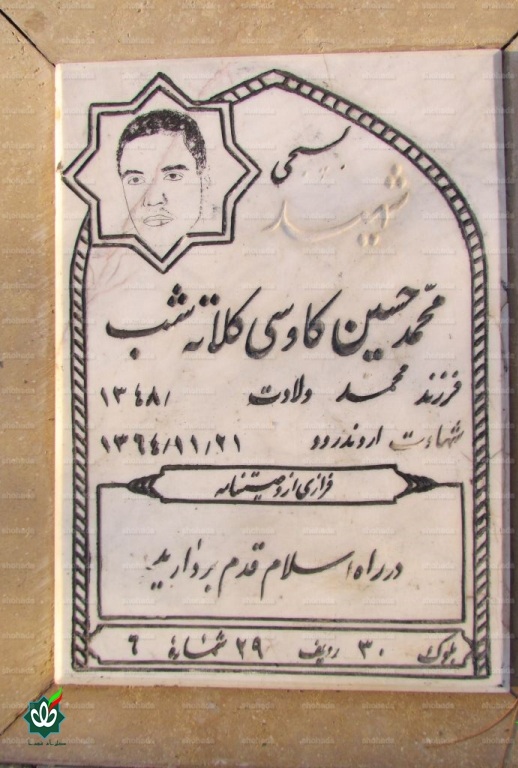 بسیجی
شهید
محمد حسین کاوسی کلاته شب
فرزند محمد ولادت ۱۳٤۸/
شهادت اروندرود ۱۳٦٤/۱۱/۲۱
فرازی از وصیتنامه
در راه اسلام قدم بردارید
بلوک ۳۰ ردیف ۲۹ شمارهٔ ٦